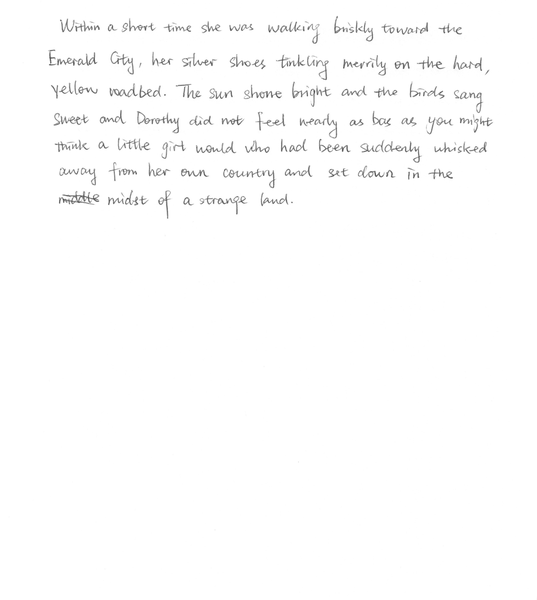 Within a short time she was walking briskly toward the
Emerald City, her silver shoes tinkling merrily on the hard,
yellow roadbed. The sun shone bright and the birds sang
sweet and Dorothy did not feel nearly as bas as you might
think a little girl would who had been suddenly whisked
away from her own country and set down in the
middle midst of a strange land.